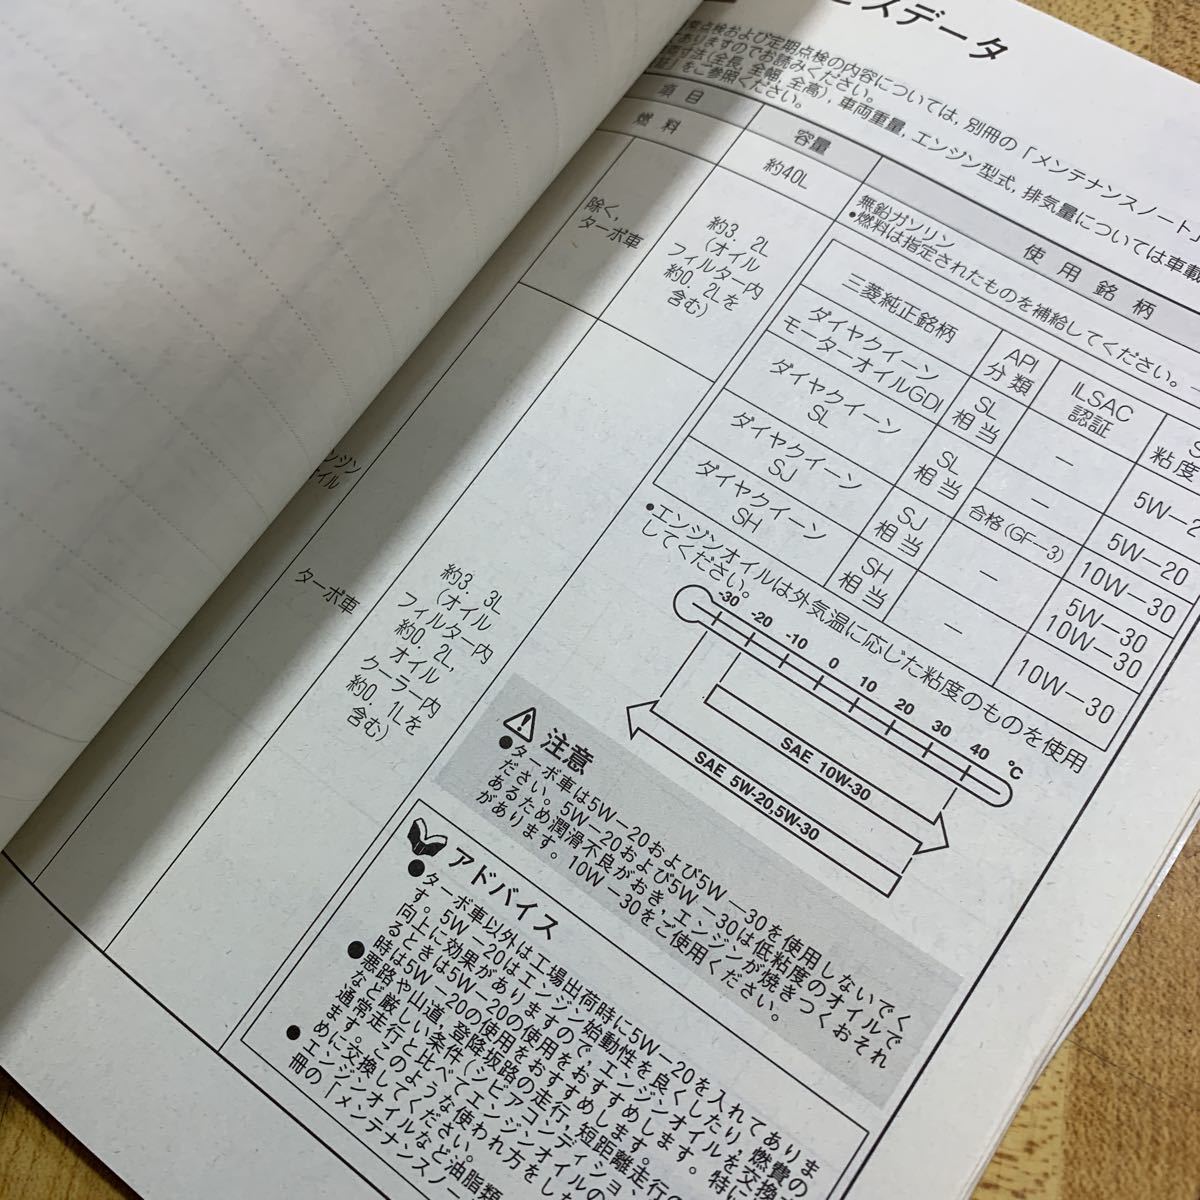 ビスデータ
点検および定期点検の内容については, 別冊の「メンテナンスノート」
ありますのでお読みください。
寸法(全長, 全幅, 全高), 車両重量, エンジン型式, 排気量については車載
証」をご参照ください。
項目
容量
使用銘柄
燃料
約40L
無鉛ガソリン
●燃料は指定されたものを補給してください。
エンジン
オイル
除く,
ターボ車
約3.2L
(オイル
フィルター内
約0.2Lを
含む)
ターボ車
約3.3L
(オイル
フィルター内
約0.2L,
オイル
クーラー内
約0.1Lを
含む)
三菱純正銘柄
API
分類
ILSAC
認証
粘度
ダイヤクイーン
モーターオイルGDI
SL
相当
—
5W-2
ダイヤクイーン
SL
SL
相当
—
合格(GF-3)
5W-20
10W-30
ダイヤクイーン
SJ
SJ
相当
—
5W-30
10W-30
ダイヤクイーン
SH
SH
相当
—
10W-30
●エンジンオイルは外気温に応じた粘度のものを使用
してください。
-30 -20 -10 0 10 20 30 40 ℃
SAE 10W-30
SAE 5W-20,5W-30
注意
●ターボ車は5W-20および5W-30を使用しないでく
ださい。5W-20および5W-30は低粘度のオイルで
あるため潤滑不良がおき, エンジンが焼きつくおそれ
があります。10W-30をご使用ください。
アドバイス
●ターボ車以外は工場出荷時に5W-20を入れてありま
す。5W-20はエンジン始動性を良くしたり, 燃費の
向上に効果がありますので, エンジンオイルを交換
るときは5W-20の使用をおすすめします。特に
時は5W-20の使用をおすすめします。
●悪路や山道, 登降坂路の走行, 短距離走行の
など厳しい条件(シビアコンディショ
通常走行と比べてエンジンオイルの
ます。このような使われ方をした
めに交換してください。
●エンジンオイルなど油脂類
冊の「メンテナンスノー